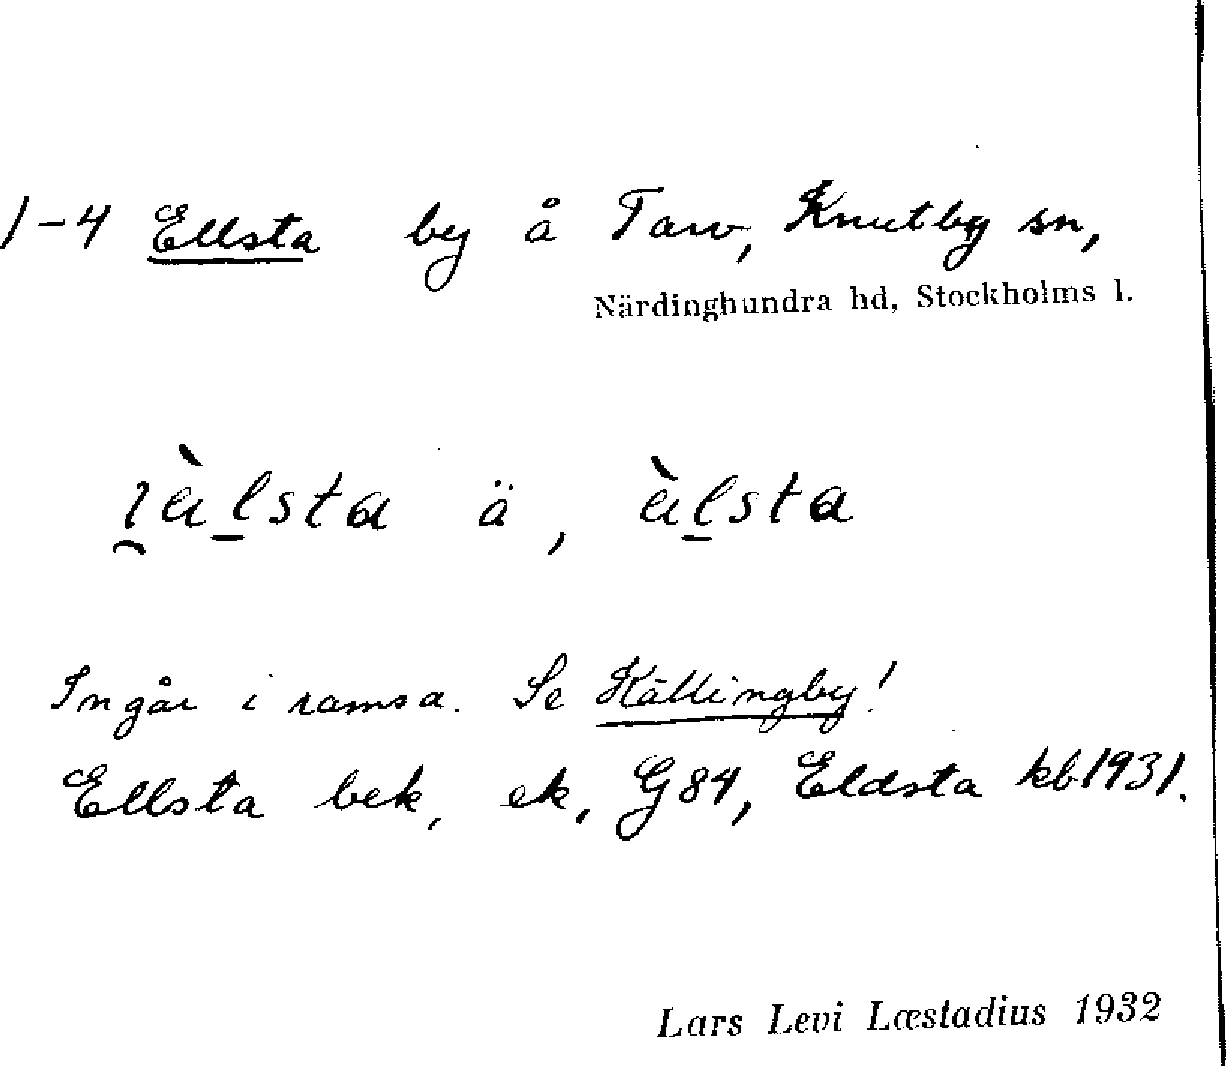 1-4 Ellsta by å Tarv, Knutby sn,
Närdinghundra hd, Stockholms l.
ä,
Ingår i ramsa. Se Källingby!
Ellsta bek, ek, G84, Eldsta kb 1931.
Lars Levi Læstadius 1932